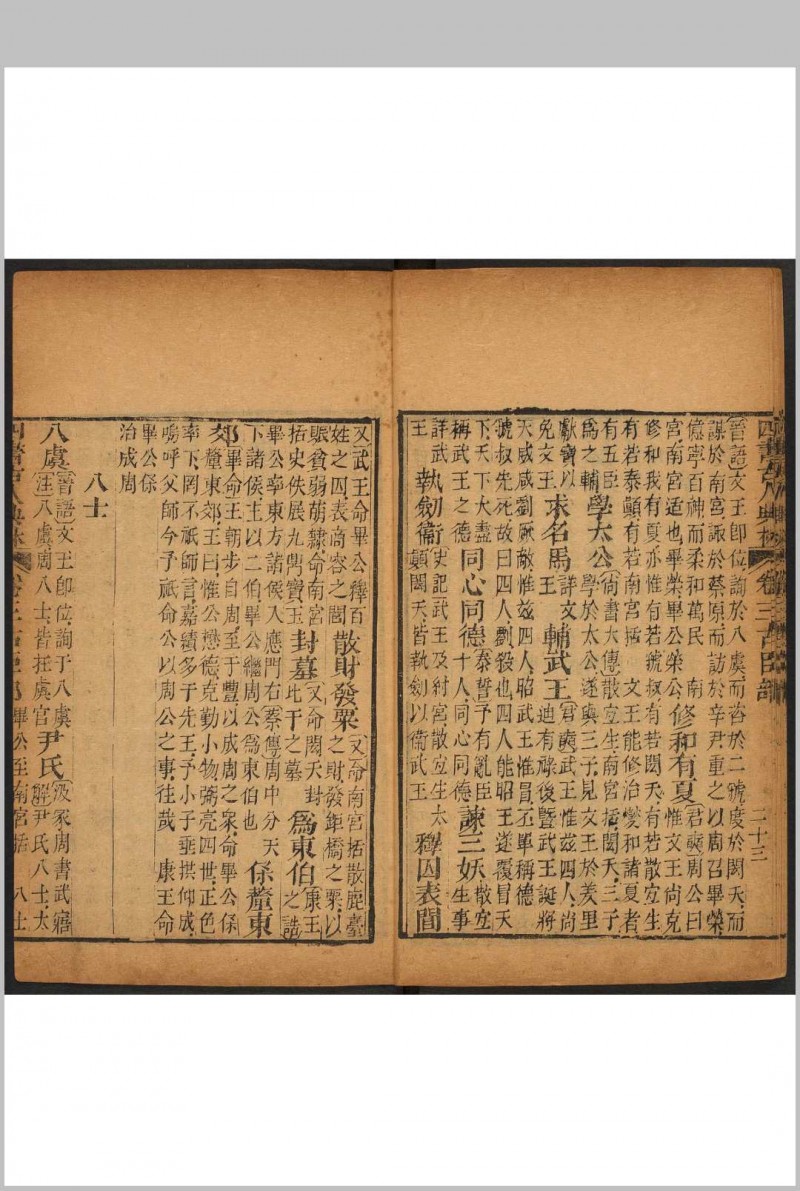 四書古人典林 卷三古臣部 二十三
晉語文王即位詢於八虞而咨於二虢度於閎夭而
謀於南宮諏於蔡原而訪於辛尹重之以周召畢榮
億寧百神而柔和萬民 南
宮南宮适也畢榮畢公榮公 修和有夏 君奭周公曰
惟文王尚克
修和我有夏亦惟有若虢叔有若閎夭有若散宜生
有若泰顚有若南宮括 文王能修治燮和諸夏者
有五臣
為之輔 學太公 尚書大傳散宜生南宮括閎夭三子
學於太公遂與三子見文王於羑里
獻寶以
免文王 求名馬 詳文
王 輔武王 君奭武王惟茲四人尚
迪有祿後暨武王誕將
天威咸劉厥敵惟茲四人昭武王惟冒丕單稱德
虢叔先死故曰四人劉殺也四人能昭王遂覆冒天
下天下大盡
稱武王之德 同心同德 泰誓予有亂臣
十人同心同德 諫三妖 散宜
生事
詳武
王 執劍衛王 史記武王及紂宮散宜生太
顚閎夭皆執劍以衛武王 釋囚表閭
又武王命畢公釋百
姓之囚表商容之閭 散財發粟 又命南宮括散鹿臺
之財發鉅橋之粟以
賑貧弱萌隸命南宮
括史佚展九鼎寶玉 封墓 又命閎夭封
比干之墓 為東伯 康王
之誥
畢公率東方諸侯入應門右 蔡傳周中分天
下諸侯主以二伯畢公繼周公為東伯也 保釐東
郊 畢命王朝步自周至于豐以成周之衆命畢公保
釐東郊王曰惟公懋德克勤小物弼亮四世正色
率下罔不祗師言嘉績多于先王予小子垂拱仰成
嗚呼父師今予祗命公以周公之事往哉 康王命
畢公保
治成周
八士
八虞 晉語文王即位詢于八虞
注八虞周八士皆在虞官 尹氏 汲冢周書武寤
解尹氏八士太
四書古人典林 卷三古臣部 畢公至南宮括 八士